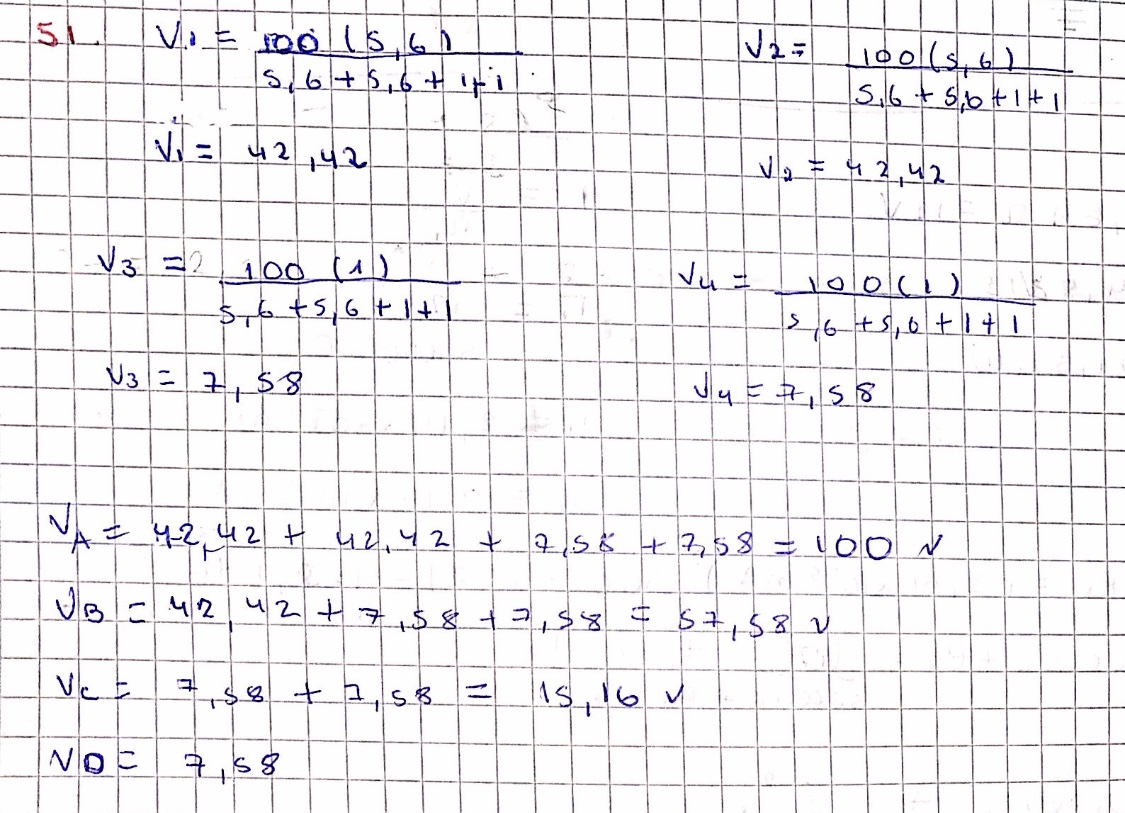 51. V1 = 100 (5,6) / 5,6 + 5,6 + 1+1
V2 = 100 (5,6) / 5,6 + 5,6 + 1 + 1
V1 = 42,42
V2 = 42,42
V3 = 100 (1) / 5,6 + 5,6 + 1+1
V4 = 100 (1) / 5,6 + 5,6 + 1 + 1
V3 = 7,58
V4 = 7,58
VA = 42,42 + 42,42 + 7,58 + 7,58 = 100 V
VB = 42,42 + 7,58 + 7,58 = 57,58 V
VC = 7,58 + 7,58 = 15,16 V
VD = 7,58